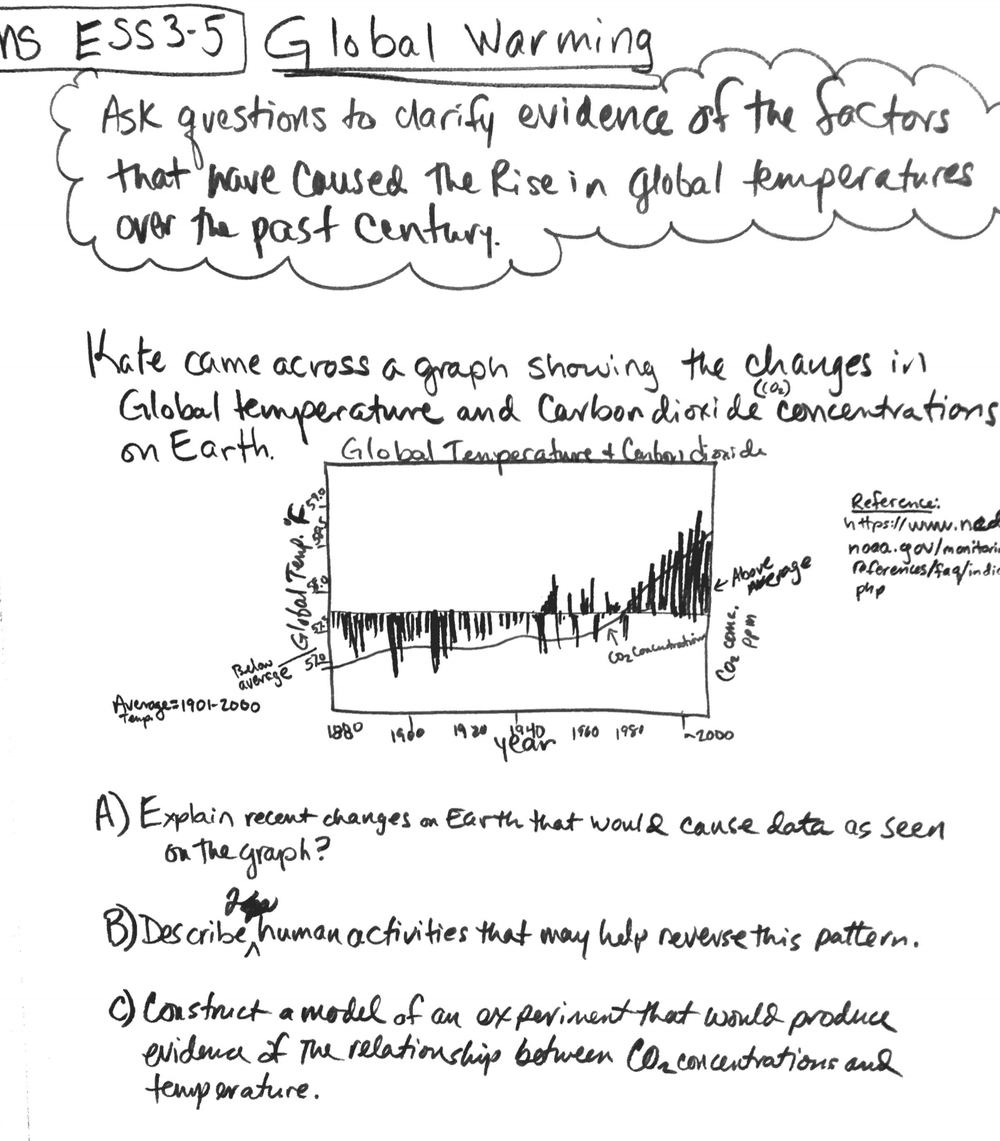 NS ESS3-5 Global Warming
Ask questions to clarify evidence of the factors
that have caused the Rise in global temperatures
over the past century.
Kate came across a graph showing the changes in
Global temperature and Carbon dioxide (CO₂) concentrations
on Earth.
Global Temperature + Carbon dioxide
Global Temp. °F
59.0
58.0
57.0
Below
average
Average = 1901-2000
temp.
← Above
Average
CO₂ conc.
ppm
CO₂ concentration
1880 1900 1920 1940 1960 1980 ~2000
year
Reference:
https://www.ncd
noaa.gov/monitorin
references/faq/indic
php
A) Explain recent changes on Earth that would cause data as seen
on the graph?
B) Describe 2 human activities that may help reverse this pattern.
C) Construct a model of an experiment that would produce
evidence of the relationship between CO₂ concentrations and
temperature.